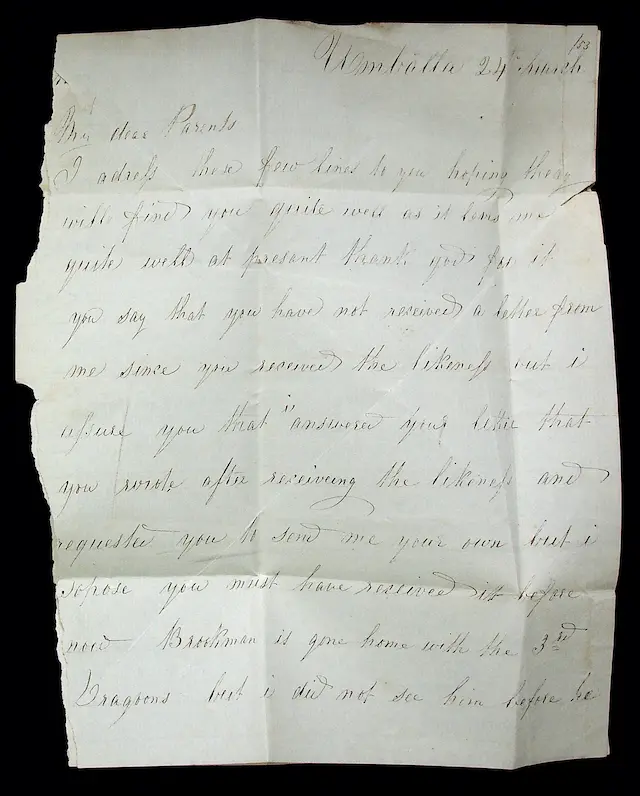 /53
Umballa 24 March
My dear Parents
I adress these few lines to you hoping theay
will find you quite well as it leves me
quite well at presant thank god for it
you say that you have not received a letter from
me since you received the likeness but i
assure you that i answered your letter that
you wrote after receiveing the likeness and
requested you to send me your own but i
sopose you must have received it before
now Brookman is gone home with the 3rd
Dragoons but i did not see him before he